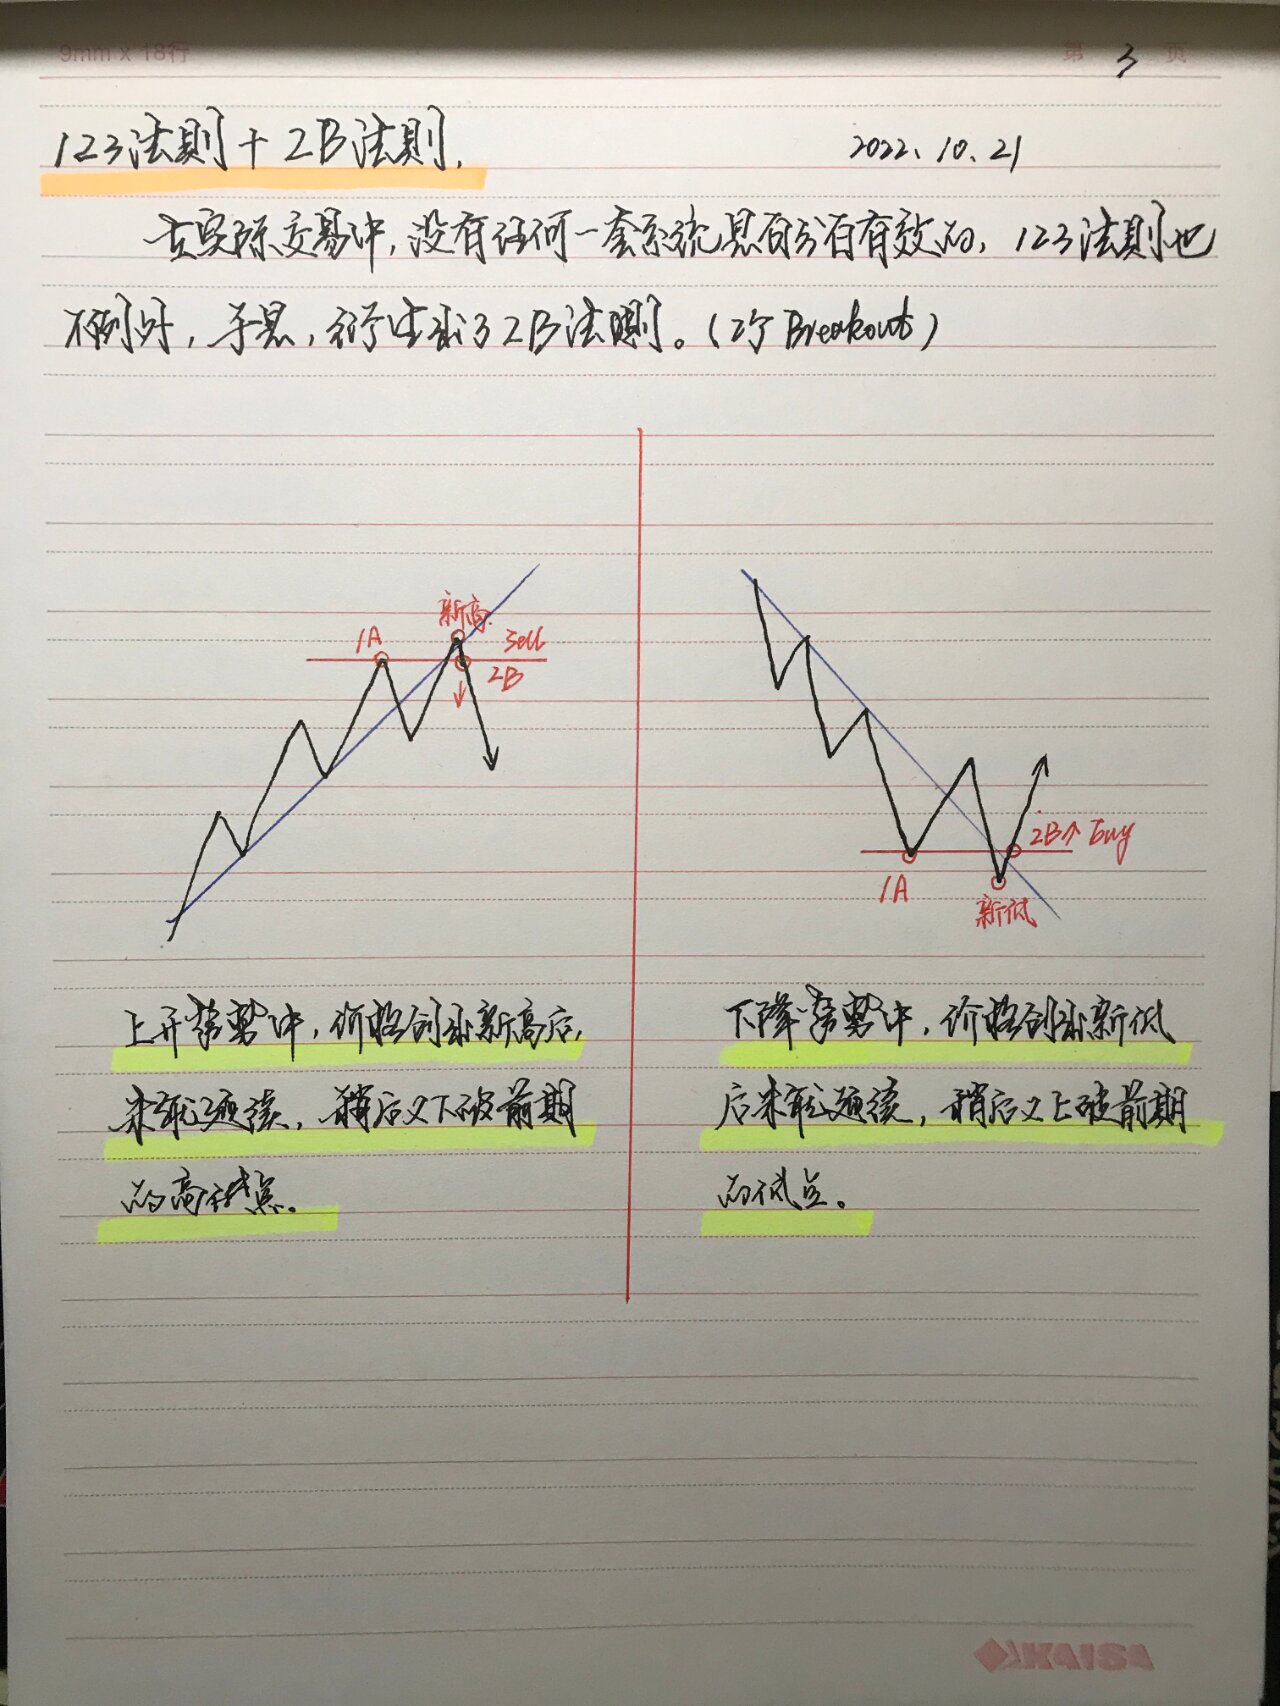 9mm x 18行
第 3 页
123法则+2B法则.
2022.10.21
在实际交易中,没有任何一套系统是百分百有效的,123法则也
不例外,于是,衍生出了2B法则。(2个Breakout)
新高
1A
sell
2B
2B↑ buy
1A
新低
上升趋势中,价格创出新高后,
未能延续,稍后又下破前期
的高点。
下降趋势中,价格创出新低
后未能延续,稍后又上破前期
的低点。
KAISA